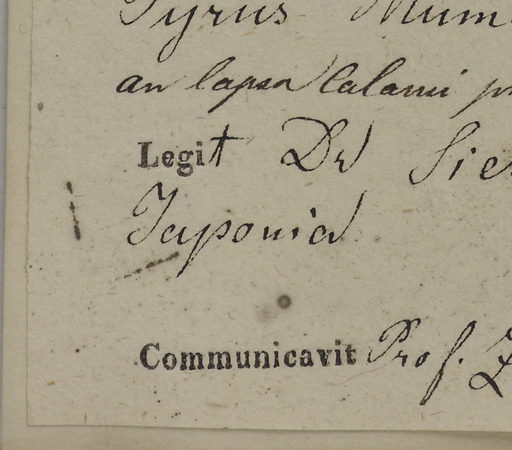 Pyrus Mum
an lapsu Calami pr
Legit Dr Sie
Japonia
Communicavit Prof. Z